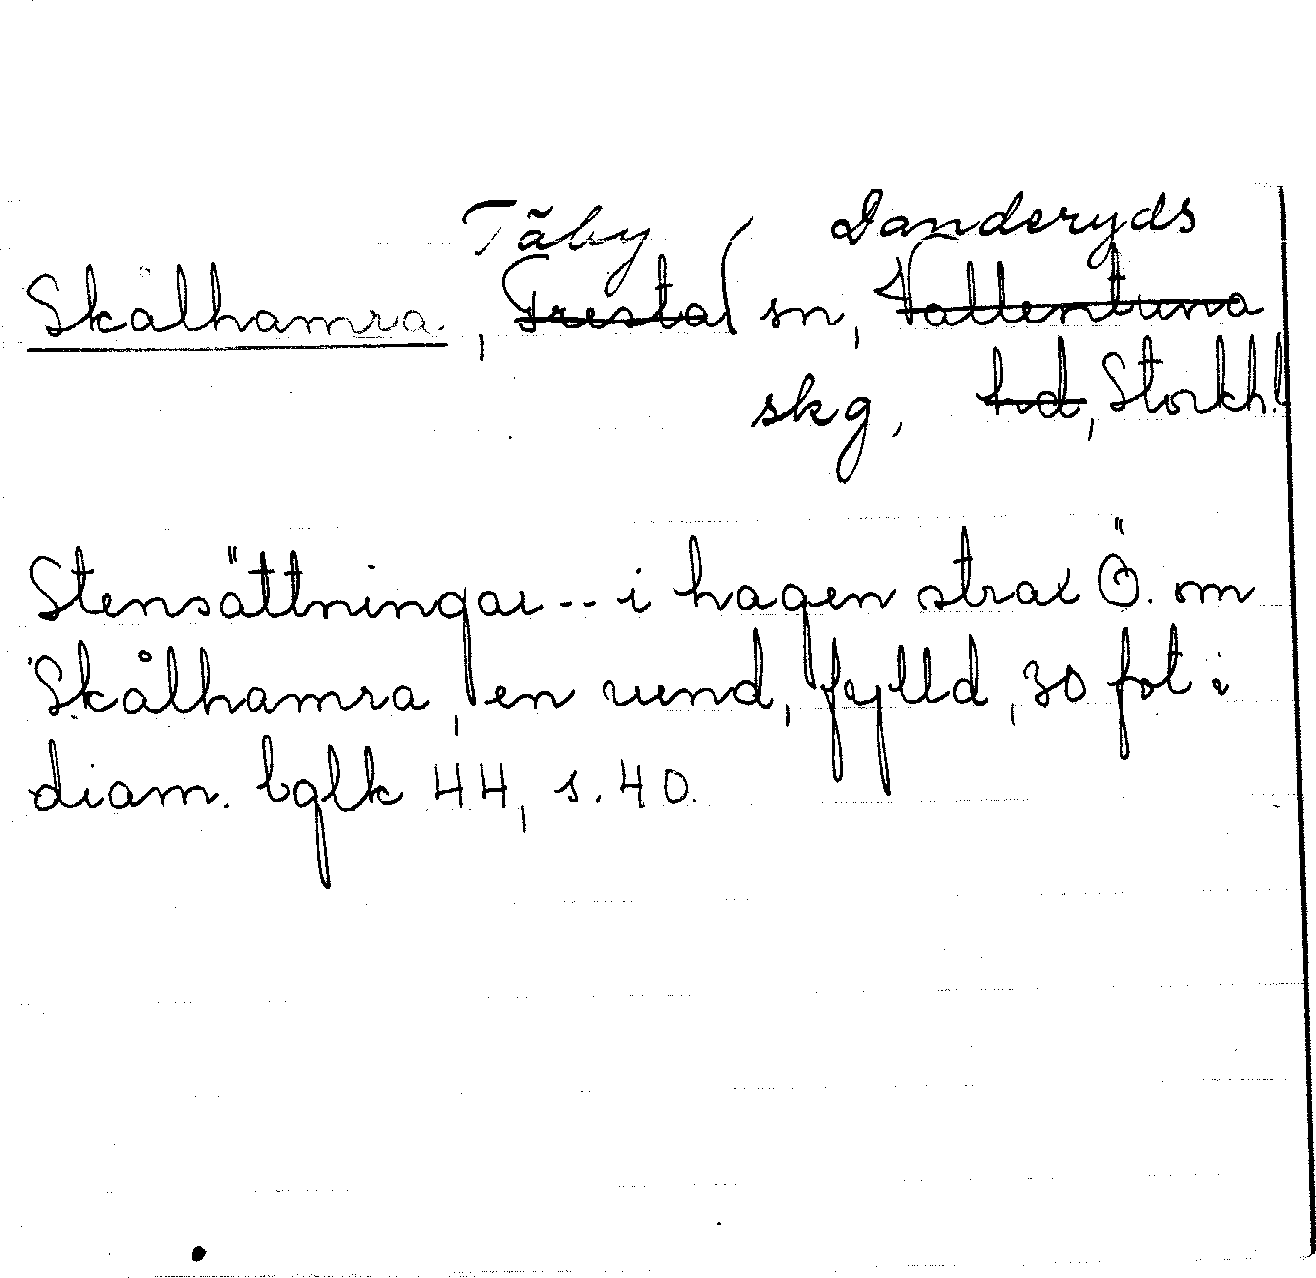 Täby Danderyds
Skålhamra, Fresta sn, Vallentuna
skg, hd, Stockh.l
Stensättningar -- i hagen strax Ö. om
Skålhamra, en rund, fylld, 30 fot i
diam. bglk 44, s. 40.